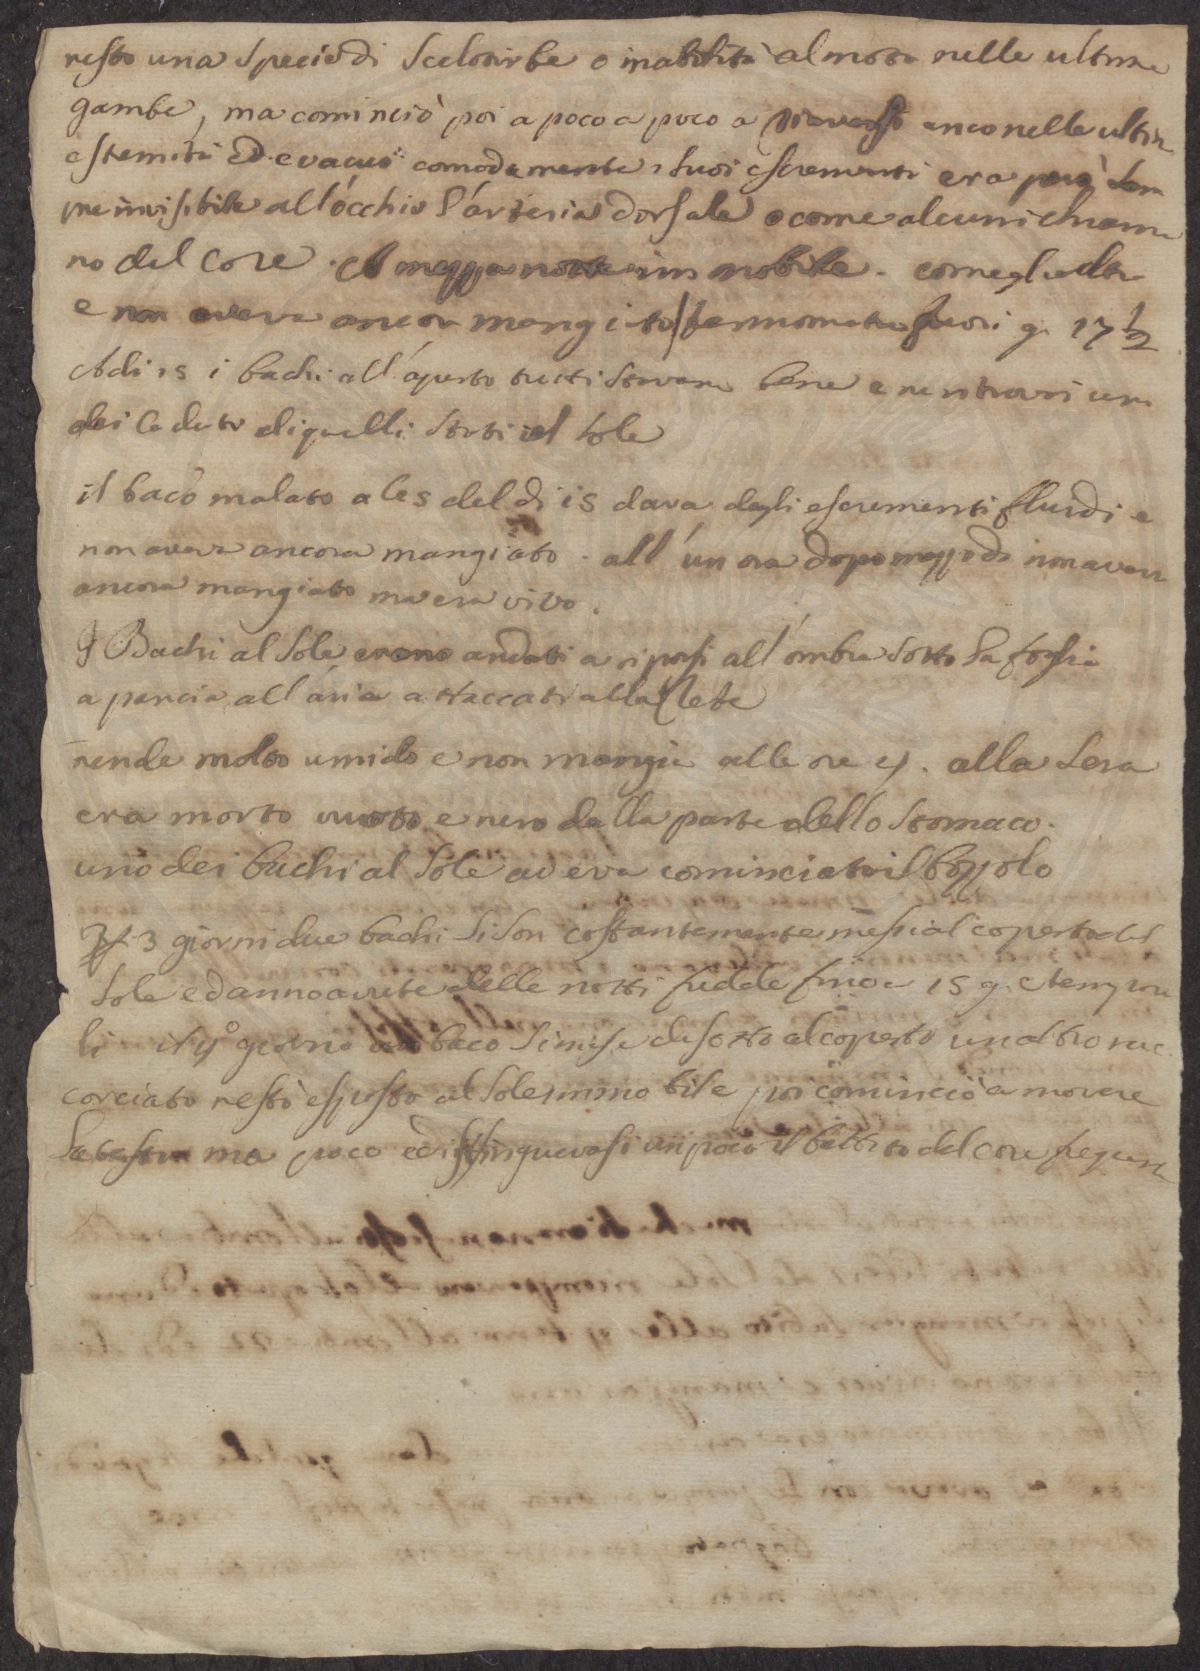 resto una specie di Scelotirbe o inabilità al moto nelle ultime
gambe, ma cominciò poi a poco a poco a anco nelle ultim
estemità ed evacuò comodamente i suoi escrementi era però sem
pre invisibile all'occhio l'arteria dorsale o come alcuni chiama
no del core. A mezza notte immobile. come gl'altri
e non aveva ancor mangiato termometro fuori g. 17 1/2
Adi 15 i bachi all'aperto tutti stavan bene e ne ritrovai uno
dei caduti di quelli stati al sole
il baco malato a les del di 15 dava degli escrementi fluidi e
non aveva ancora mangiato. all'un ora dopo mezzodi non aveva
ancora mangiato ma era vivo.
I Bachi al Sole erano andati a riporsi all'ombra sotto la foglia
a pancia all'aria attaccati alla rete
rende molto umido e non mangia alle ore 4. alla sera
era morto vuoto e nero dalla parte dello stomaco.
uno dei bachi al Sole aveva cominciato il bozzolo
3 giorni due bachi si son costantemente messi al coperto del
Sole ed anno avute delle notti fredde fino a 15 g. e tempora
li il 4º giorno un baco si mise di sotto al coperto un altro rac
corciato restò esposto al Sole immobile poi cominciò a movere
la testa ma poco e distinguevasi un poco il battito del core